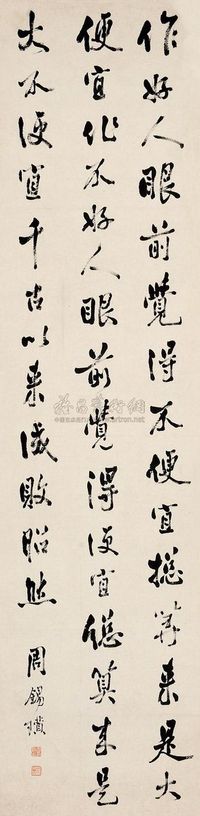 作好人眼前覺得不便宜總算來是大
便宜作不好人眼前覺得便宜總算來是
大不便宜千古以來成敗昭然
周錫瓚